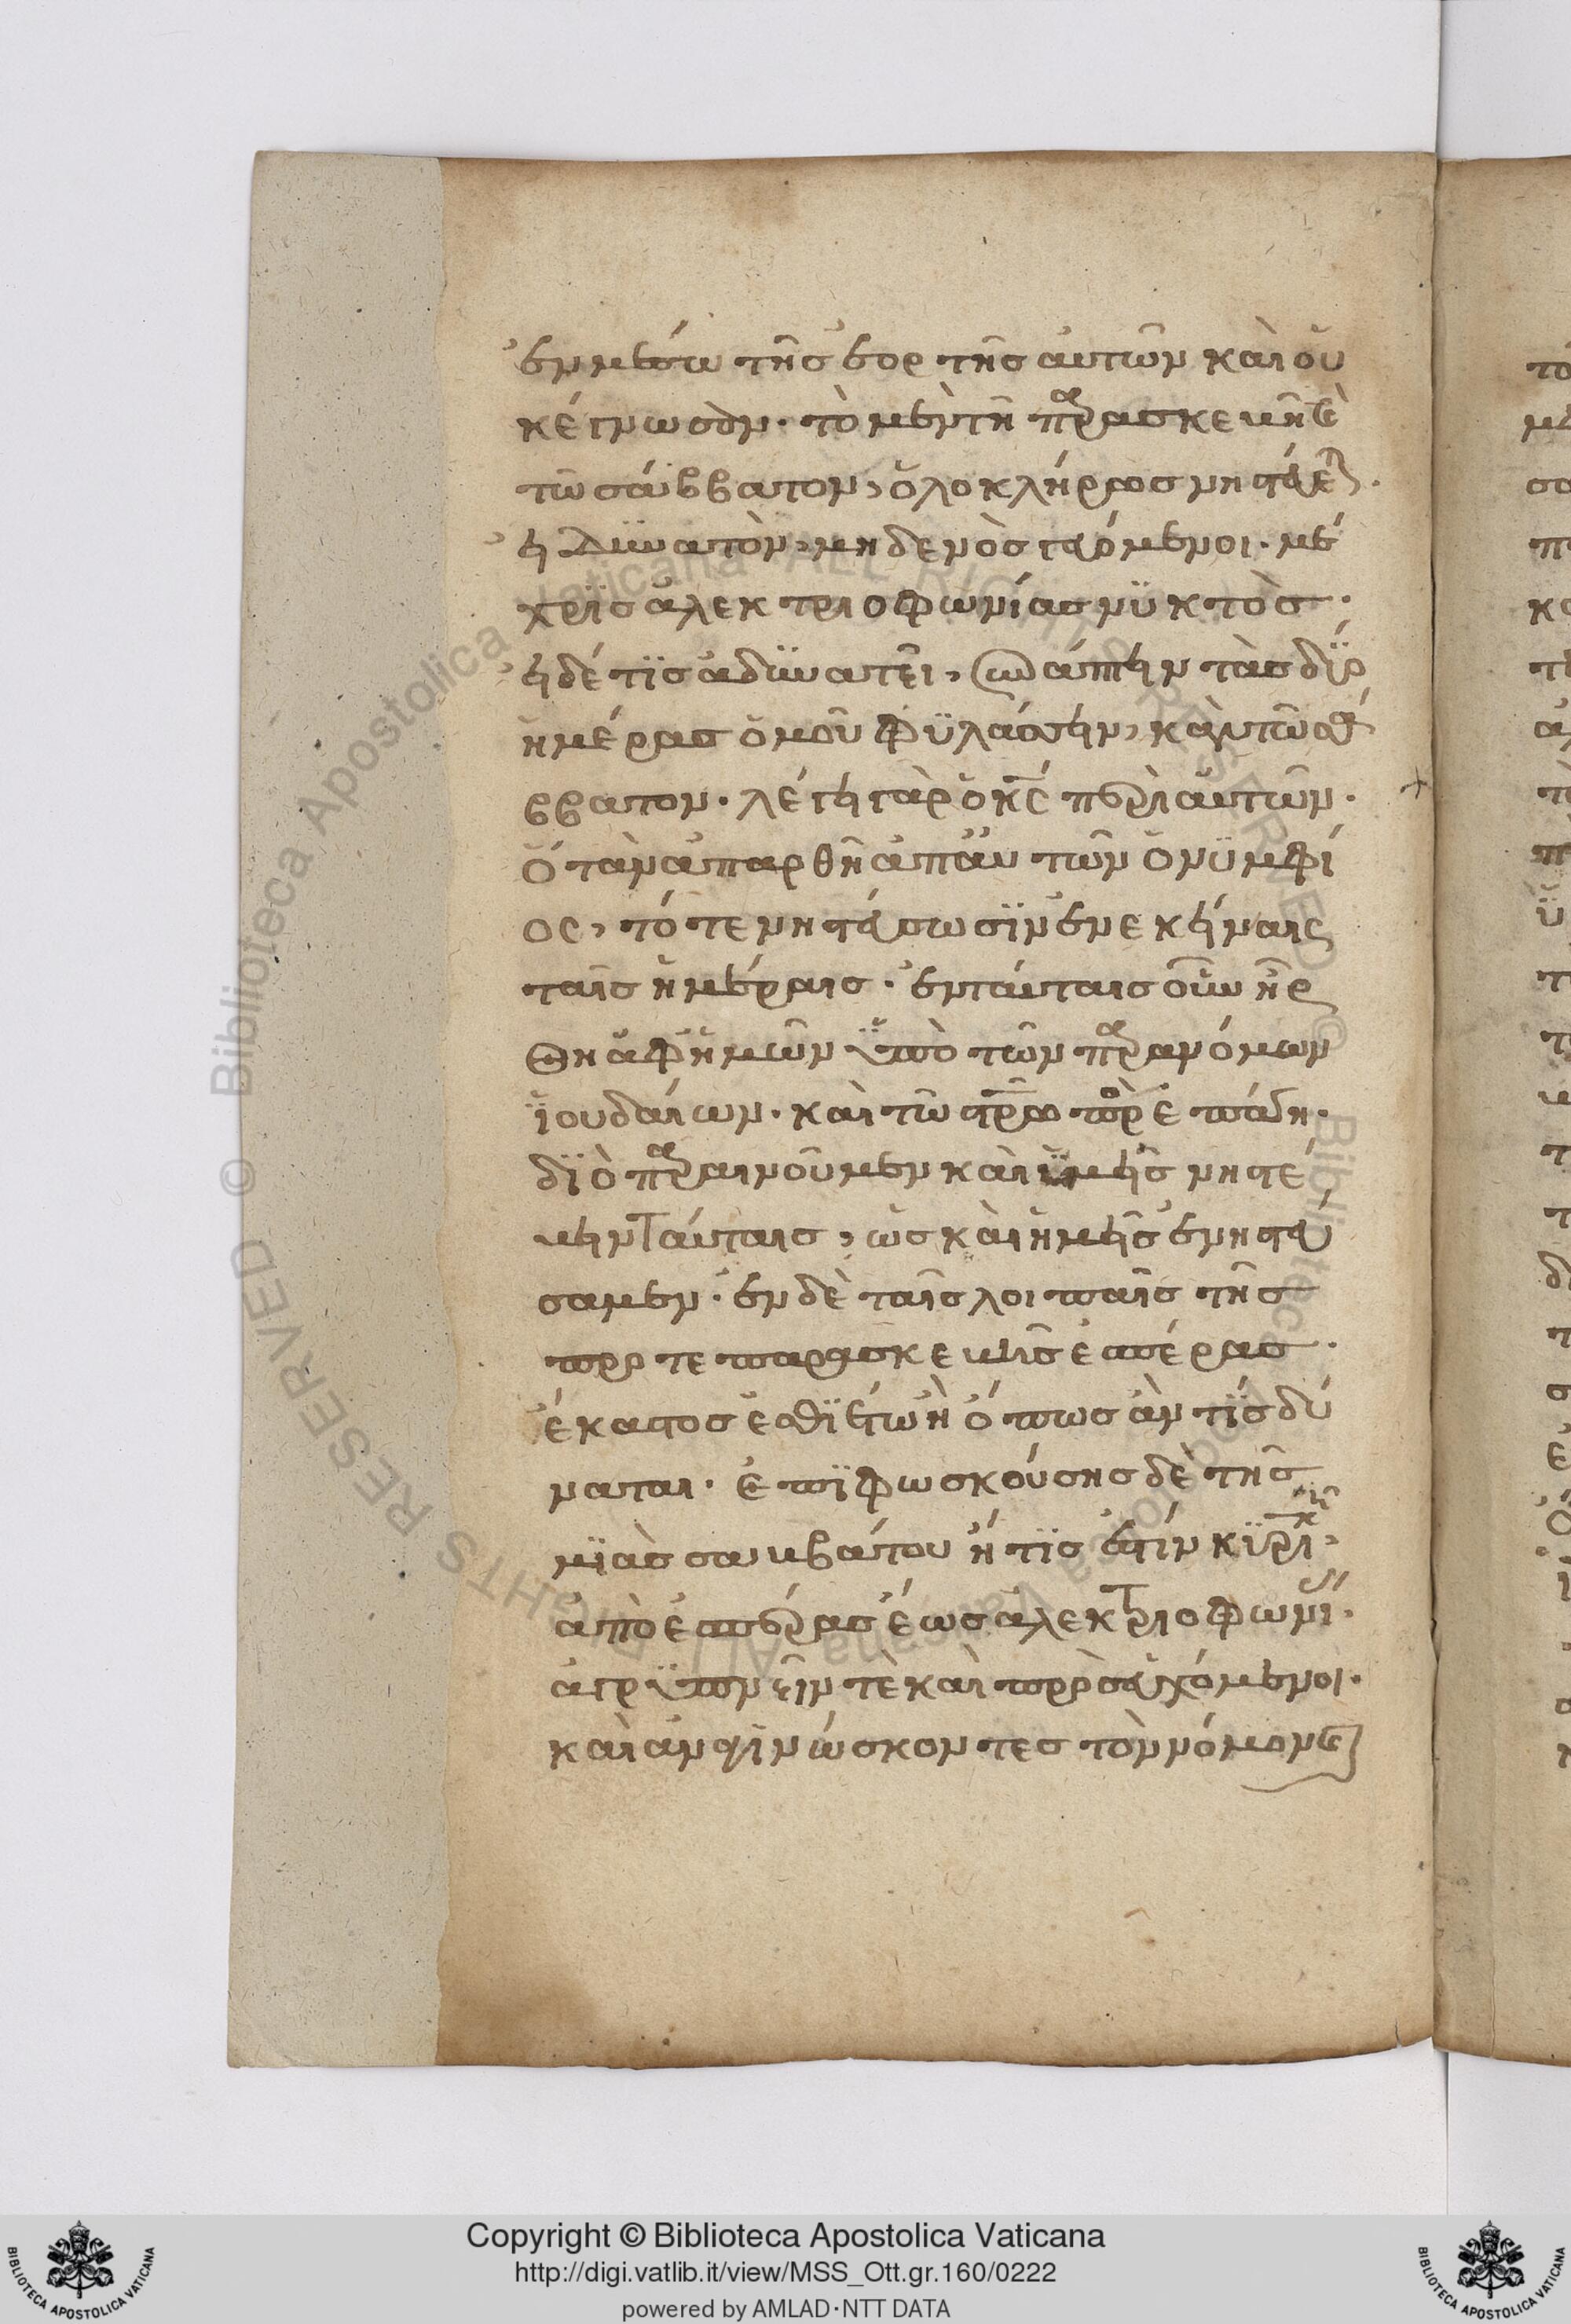 ἐν μέσω τῆς ἑορτῆς αὐτῶν καὶ οὐ
κέγνωσαν. τὸ μὲν τῆ παρασκευῆ καὶ
τῶ σάββατον, ὁλοκλήρως νηστεύεται.
εἰ δϋνατὸν, μηδενὸς γευόμενοι. μέ
χρϊς ἀλεκτριοφωνίας νϋκτὸς.
εἰ δέ τϊς ἀδϋνατεῖ, συνάπτειν τὰς δϋο
ἡμέρας ὁμοῦ φϋλάσσειν, κἂν τῶ σά
ββατον. λέγει γὰρ ὁ κς περὶ αὐτῶν.
ὅταν ἀπαρθῆ ἀπ' αὐτῶν ὁ νϋμφί
ος, τότε νηστεύσωσϊν ἐν ἐκείναις
ταῖς ἡμέραις. ἐν ταύταις οὖν ἦρ
θη ἀφ' ἡμῶν ϋπὸ τῶν παρανόμων
ϊουδαίων. καὶ τῶ στρω προσεπάγη.
δϊὸ παραινοῦμεν καὶ ϋμεῖς νηστεύ
ειν ταύταις, ὡς καὶ ἡμεῖς ἐνηστεύ
σαμεν. ἐν δὲ ταῖς λοιπαῖς τῆς
πρωτεπαρασκευεῖς ἑσπέρας.
ἕκαστος ἐσθϊέτω ἢ ὅπως ἂν τϊς δύ
ναται. ἐπϊφωσκούσης δὲ τῆς
μϊὰς σαυββάτου ἥτϊς ἐστὶν κϋριακὴ,
ἀπὸ ἑσπέρας ἕως ἀλεκτριοφωνίας.
ἀγρϋπνεῖν τὲ καὶ προσευχόμενοι.
καὶ ἀναγινώσκοντες τὸν νόμον καὶ
Copyright © Biblioteca Apostolica Vaticana
http://digi.vatlib.it/view/MSS_Ott.gr.160/0222
powered by AMLAD·NTT DATA